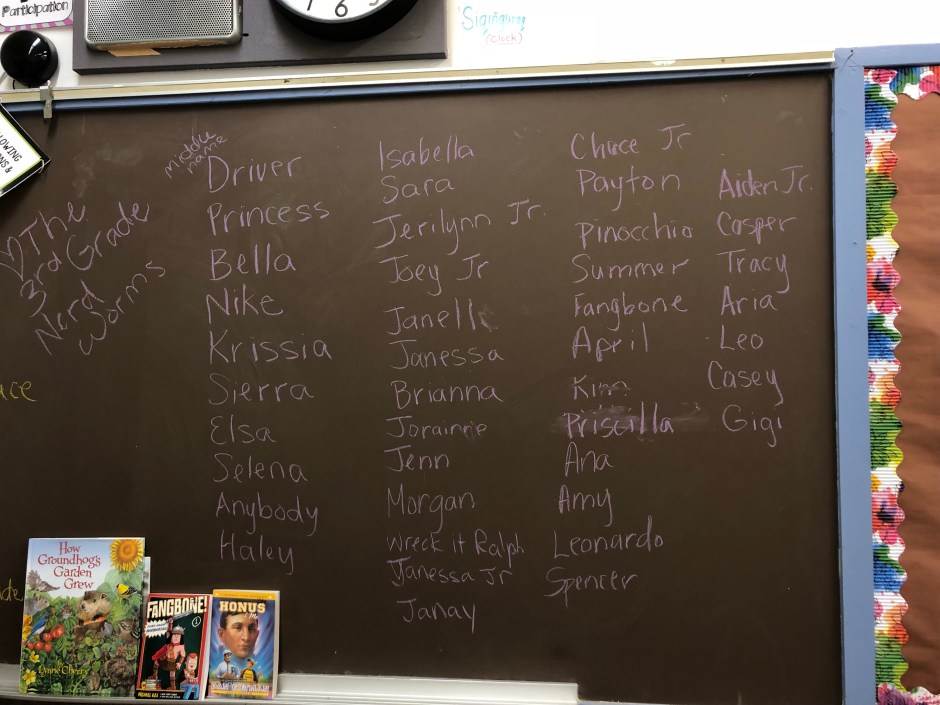 Participation
7 6 5
Signaling
(Clock)
♡ The
3rd Grade
Nerd
Worms
middle
name
Driver
Princess
Bella
Nike
Krissia
Sierra
Elsa
Selena
Anybody
Haley
Isabella
Sara
Jerilynn Jr.
Joey Jr
Janell
Janessa
Brianna
Jorainne
Jenn
Morgan
Wreck it Ralph
Janessa Jr
Janay
Chuce Jr
Payton
Pinocchio
Summer
Fangbone
April
Kim
Priscilla
Ana
Amy
Leonardo
Spencer
Aiden Jr.
Casper
Tracy
Aria
Leo
Casey
Gigi
How
Groundhog's
Garden
Grew
Lynne Cherry
FANGBONE!
HONUS
& Me